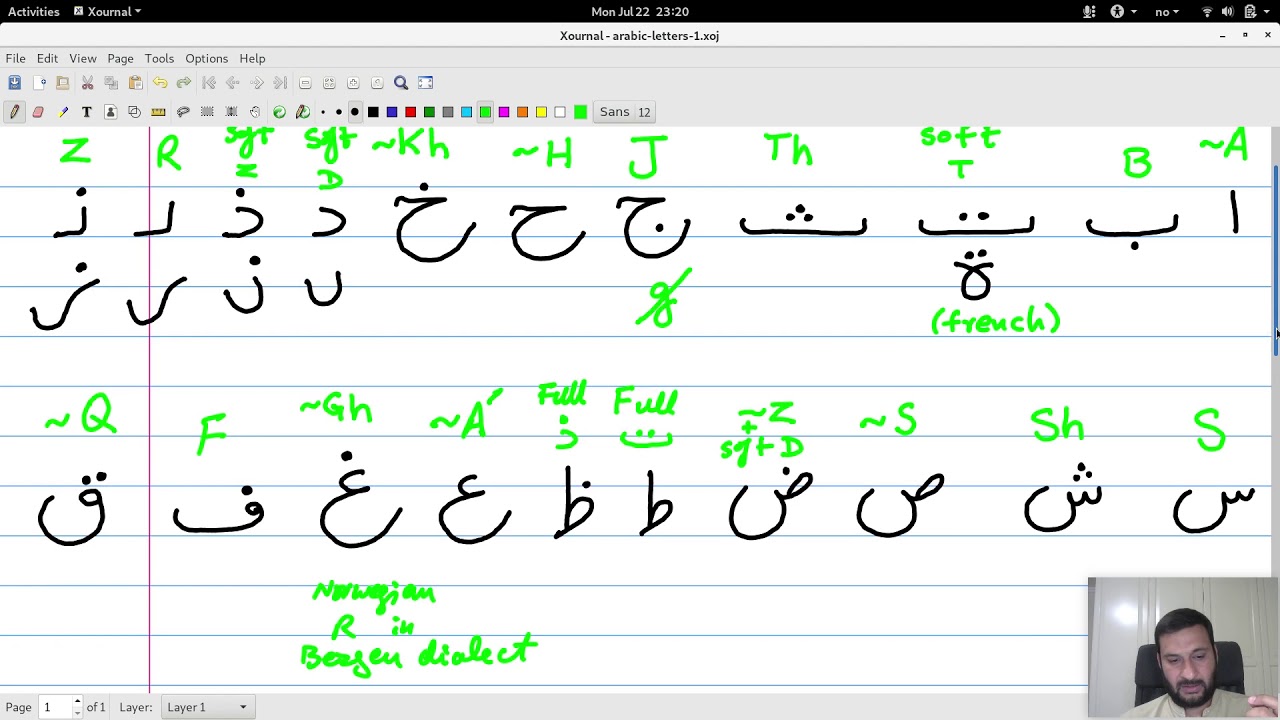 Activities Xournal Mon Jul 22 23:20 no
Xournal - arabic-letters-1.xoj
File Edit View Page Tools Options Help
Sans 12
Z R soft Z soft D ~Kh ~H J Th soft T B ~A
ا ب ت ث ج ح خ د ذ ر ز
ة
g
(french)
~Q F ~Gh ~A' Full ذ Full ت ~Z + soft D ~S Sh S
س ش ص ض ط ظ ع غ ف ق
Norwegian
R in
Bergen dialect
Page 1 of 1 Layer: Layer 1